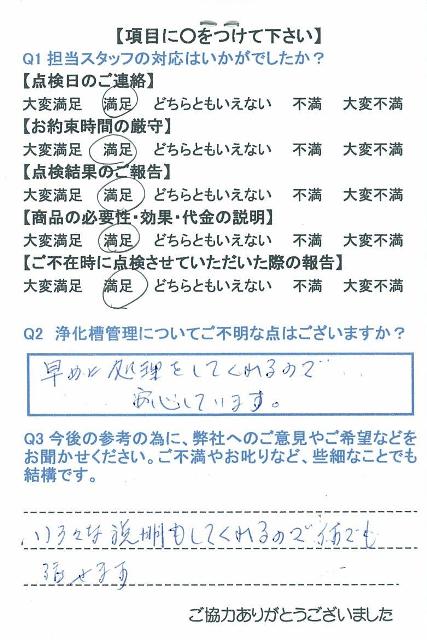 【項目に〇をつけて下さい】
Q1 担当スタッフの対応はいかがでしたか？
【点検日のご連絡】
大変満足 満足 どちらともいえない 不満 大変不満
【お約束時間の厳守】
大変満足 満足 どちらともいえない 不満 大変不満
【点検結果のご報告】
大変満足 満足 どちらともいえない 不満 大変不満
【商品の必要性・効果・代金の説明】
大変満足 満足 どちらともいえない 不満 大変不満
【ご不在時に点検させていただいた際の報告】
大変満足 満足 どちらともいえない 不満 大変不満
Q2 浄化槽管理についてご不明な点はございますか？
早めに処理をしてくれるので
安心しています。
Q3 今後の参考の為に、弊社へのご意見やご希望などを
お聞かせください。ご不満やお叱りなど、些細なことでも
結構です。
いろんな説明もしてくれるので何でも
話せます
ご協力ありがとうございました